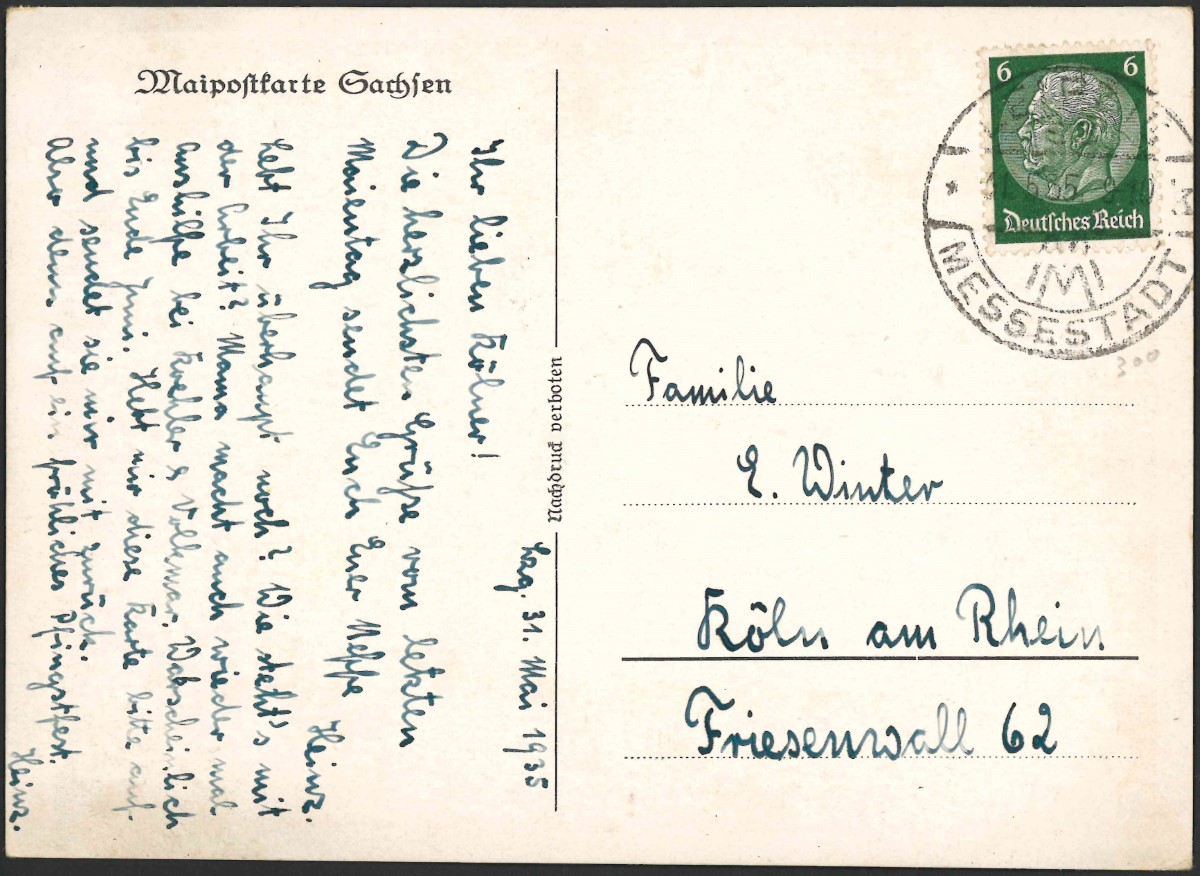 Maipostkarte Sachsen
Lzg. 31. Mai 1935
Ihr lieben Kölner!
Die herzlichsten Grüße vom letzten
Maientag sendet Euch Euer Neffe
Heinz.
Lebt Ihr überhaupt noch? Wie steht's mit
der Arbeit? Mama macht auch wieder mal
aushilfe bei Koehler & Volkmar, Wahscheinlich
bis Ende Juni. Hebt mir diese Karte bitte auf
und sendet sie mir mit zurück.
Also denn auf ein fröhliches Pfingstfest.
Heinz.
Nachdruck verboten
6 6
Deutsches Reich
MESSESTADT
M
300
Familie
E. Winter
Köln am Rhein
Friesenwall 62